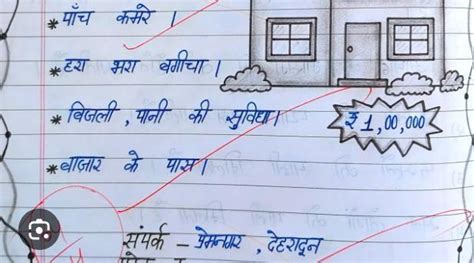 * पाँच कमरे ।
* हरा भरा बगीचा ।
* बिजली , पानी की सुविधा ।
₹ 1,00,000
* बाज़ार के पास ।
संपर्क – प्रेमनगर , देहरादून